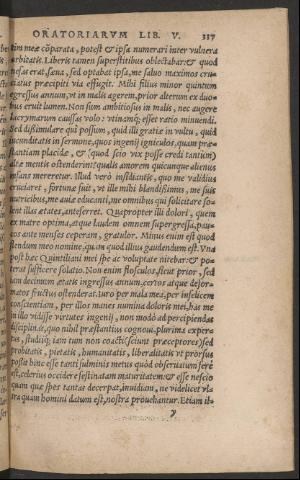 ORATORIARVM LIB. V. 337
tim meæ cōparata, potest & ipsa numerari inter vulnera
orbitatis. Liberis tamen superstitibus oblectabar: & quod
nefas erat, sæua, sed optabat ipsa, me saluo maximos cru
ciatus præcipiti via effugit. Mihi filius minor quintum
egressus annum, vt in malis agerem, prior alterum ex duo
bus eruit lumen. Non sum ambitiosus in malis, nec augere
lacrymarum caussas volo: vtinamq; esset ratio minuendi.
Sed dissimulare qui possum, quid illi gratiæ in vultu, quid
iucunditatis in sermone, quos ingenij igniculos, quam præ-
stantiam placidæ, & (quod scio vix posse credi tantum)
altæ mentis ostenderint? qualis amorem quicunque alienus
infans mereretur. Illud verò insidiantis, quo me validius
cruciaret, fortunæ fuit, vt ille mihi blandissimus, me suis
nutricibus, me auiæ educanti, me omnibus qui solicitare so-
lent illas ætates, anteferret. Quapropter illi dolori, quem
ex matre optima, atque laudem omnem supergressa, pau-
cos ante menses ceperam, gratulor. Minus enim est quod
flendum meo nomine, quàm quod illius gaudendum est. Vna
post hæc Quintiliani mei spe ac voluptate nitebar: & po-
terat sufficere solatio. Non enim flosculos, sicut prior, sed
iam decimum ætatis ingressus annum, certos atque defor-
matos fructus ostenderat. Iuro per mala mea, per infelicem
conscientiam, per illos manes numina doloris mei, has me
in illo vidisse virtutes ingenij, non modò ad percipiendas
disciplinas, quo nihil præstantius cognoui, plurima exper-
tus, studijq; iam tum non coacti (sciunt præceptores) sed
probitatis, pietatis, humanitatis, liberalitatis vt prorsus
possit hinc esse tanti fulminis metus quòd obseruatum ferè
est, celerius occidere festinatam maturitatem: & esse nescio
quam quæ spes tantas decerpat, inuidiam, ne videlicet vl-
tra quàm homini datum est, nostra prouehantur. Etiam il-
y